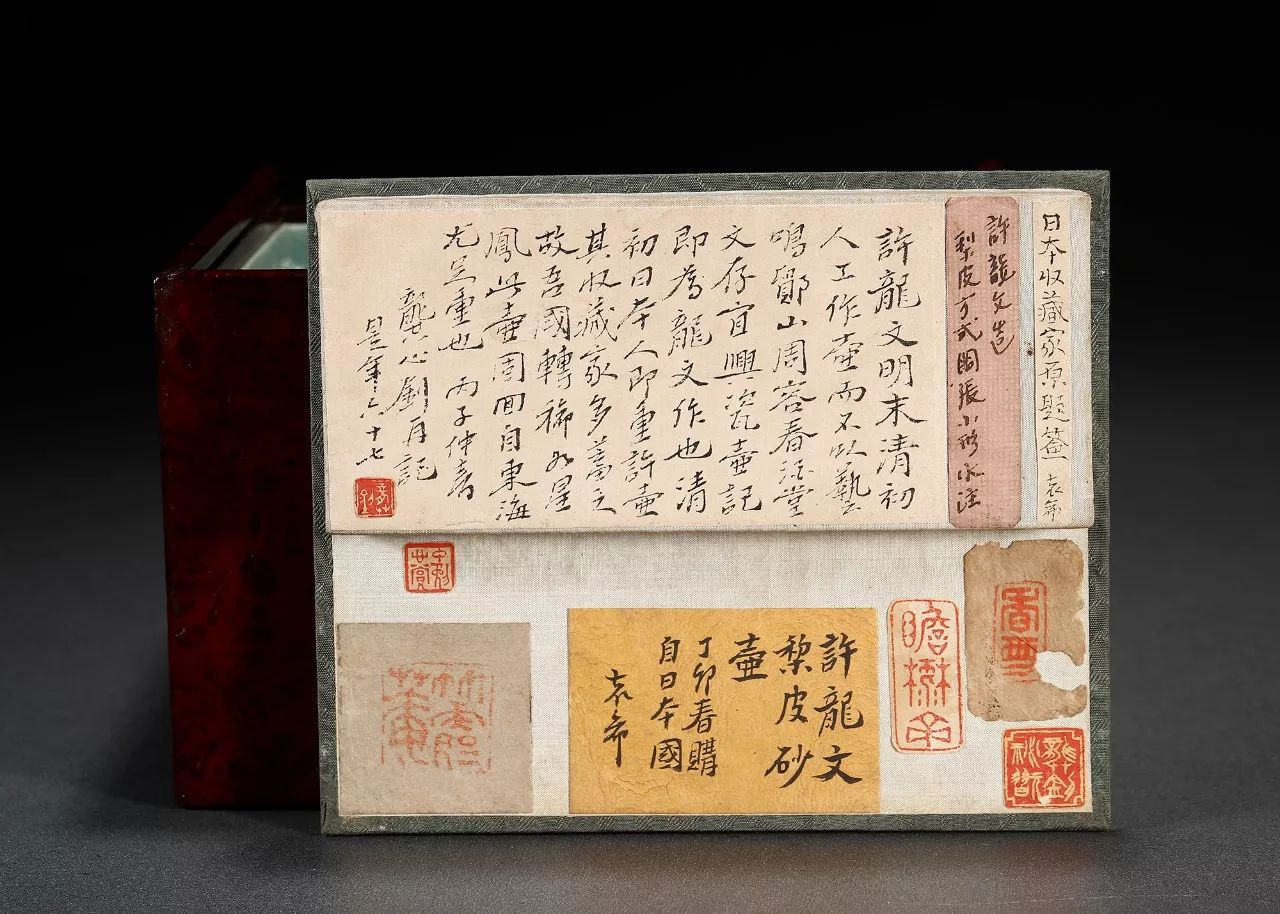 日本收藏家原題簽 褱希
許龍文造
梨皮方式圓張小形水注
許龍文明末清初
人工作壺而不以藝
鳴鄮山周容春酒堂
文存宜興瓷壺記
即為龍文作也清
初日本人即重許壺
其收藏家多蓄之
故吾國轉稀如星
鳳此壺周回自東海
尤足重也 丙子仲春
龔心釗再記
是年六十七
許龍文
梨皮砂
壺
丁卯春購
自日本國
褱希